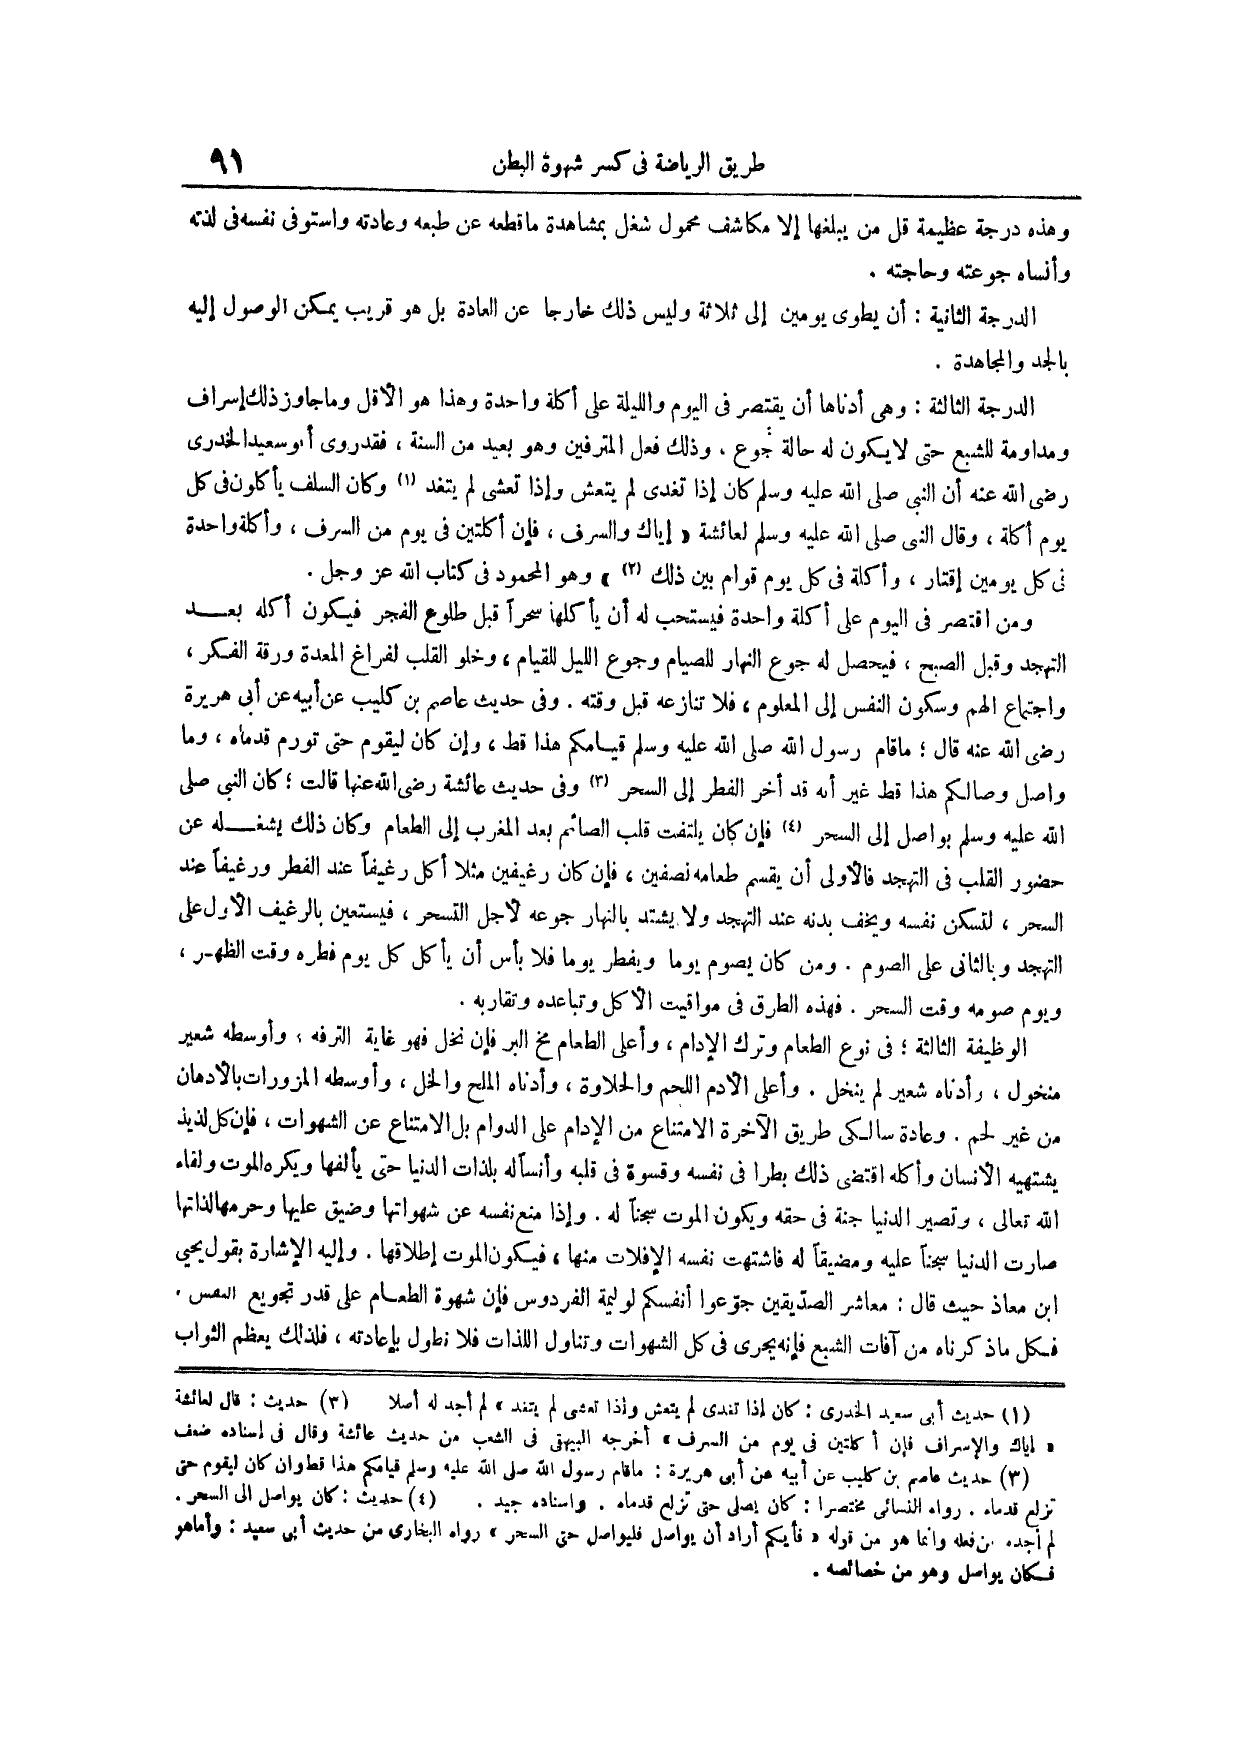 طريق الرياضة فى كسر شهوة البطن ٩١
وهذه درجة عظيمة قل من يبلغها إلا مكاشف محمول شغل بمشاهدة ماقطعه عن طبعه وعادته واستوفى نفسه فى لذته
وأنساه جوعته وحاجته .
الدرجة الثانية : أن يطوى يومين إلى ثلاثة وليس ذلك خارجا عن العادة بل هو قريب يمكن الوصول إليه
بالجد والمجاهدة .
الدرجة الثالثة : وهى أدناها أن يقتصر فى اليوم والليلة على أكلة واحدة وهذا هو الأقل وماجاوز ذلك إسراف
ومداومة للشبع حتى لايكون له حالة جوع ، وذلك فعل المترفين وهو بعيد من السنة ، فقدروى أبوسعيد الخدرى
رضى الله عنه أن النبى صلى الله عليه وسلم كان إذا تغدى لم يتعش وإذا تعشى لم يتغد (١) وكان السلف يأكلون فى كل
يوم أكلة ، وقال النبى صلى الله عليه وسلم لعائشة « إياك والسرف ، فإن أكلتين فى يوم من السرف ، وأكلة واحدة
فى كل يومين إقتار ، وأكلة فى كل يوم قوام بين ذلك (٢) » وهو المحمود فى كتاب الله عز وجل .
ومن اقتصر فى اليوم على أكلة واحدة فيستحب له أن يأكلها سحرآ قبل طلوع الفجر فيكون أكله بعد
التهجد وقبل الصبح ، فيحصل له جوع النهار للصيام وجوع الليل للقيام ، وخلو القلب لفراغ المعدة ورقة الفكر ،
واجتماع الهم وسكون النفس إلى المعلوم ، فلا تنازعه قبل وقته . وفى حديث عاصم بن كليب عن أبيه عن أبى هريرة
رضى الله عنه قال : ماقام رسول الله صلى الله عليه وسلم قيامكم هذا قط ، وإن كان ليقوم حتى تورم قدماه ، وما
واصل وصالكم هذا قط غير أنه قد أخر الفطر إلى السحر (٣) وفى حديث عائشة رضى الله عنها قالت : كان النبى صلى
الله عليه وسلم يواصل إلى السحر (٤) فإن كان يلتفت قلب الصائم بعد المغرب إلى الطعام وكان ذلك يشغله عن
حضور القلب فى التهجد فالأولى أن يقسم طعامه نصفين ، فإن كان رغيفين مثلا أكل رغيفاً عند الفطر ورغيفاً عند
السحر ، لتسكن نفسه ويخف بدنه عند التهجد ولا يشتد بالنهار جوعه لأجل التسحر ، فيستعين بالرغيف الأول على
التهجد وبالثانى على الصوم . ومن كان يصوم يوما ويفطر يوما فلا بأس أن يأكل كل يوم فطره وقت الظهر ،
ويوم صومه وقت السحر . فهذه الطرق فى مواقيت الأكل وتباعده وتقاربه .
الوظيفة الثالثة : فى نوع الطعام وترك الإدام ، وأعلى الطعام مخ البر فإن نخل فهو غاية الترفه ، وأوسطه شعير
منخول ، وأدناه شعير لم ينخل . وأعلى الأدم اللحم والحلاوة ، وأدناه الملح والخل ، وأوسطه المزورات بالأدهان
من غير لحم . وعادة سالكى طريق الآخرة الامتناع من الإدام على الدوام بل الامتناع عن الشهوات ، فإن كل لذيذ
يشتهيه الانسان وأكله اقتضى ذلك بطرا فى نفسه وقسوة فى قلبه وأنسآله بلذات الدنيا حتى يألفها ويكره الموت ولقاء
الله تعالى ، وتصير الدنيا جنة فى حقه ويكون الموت سجناً له . وإذا منع نفسه عن شهواتها وضيق عليها وحرمها لذاتها
صارت الدنيا سجناً عليه ومضيقاً له فاشتهت نفسه الإفلات منها ، فيكون الموت إطلاقها . وإليه الإشارة بقول يحيى
ابن معاذ حيث قال : معاشر الصدّيقين جوّعوا أنفسكم لوليمة الفردوس فإن شهوة الطعام على قدر تجويع النفس .
فكل ماذكرناه من آفات الشبع فإنه يجرى فى كل الشهوات وتناول اللذات فلا نطول بإعادته ، فلذلك يعظم الثواب
(١) حديث أبى سعيد الخدرى : كان إذا تغدى لم يتعش وإذا تعشى لم يتغد » لم أجد له أصلا (٣) حديث : قال لعائشة
« إياك والإسراف فإن أكلتين فى يوم من السرف » أخرجه البيهقى فى الشعب من حديث عائشة وقال فى إسناده ضعف
(٣) حديث عاصم بن كليب عن أبيه عن أبى هريرة : ماقام رسول الله صلى الله عليه وسلم قيامكم هذا قط وان كان ليقوم حتى
تزلع قدماه . رواه النسائى مختصرا : كان يصلى حتى تزلع قدماه . واسناده جيد . (٤) حديث : كان يواصل الى السحر .
لم أجده من فعله وانما هو من قوله « فأيكم أراد أن يواصل فليواصل حتى السحر » رواه البخارى من حديث أبى سعيد : وأماهو
فكان يواصل وهو من خصائصه .